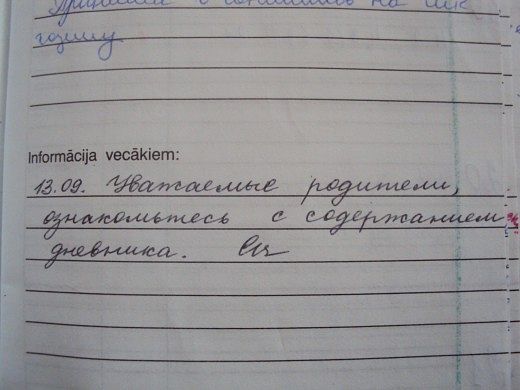 на
Informācija vecākiem:
13.09. Уважаемые родители,
ознакомьтесь с содержанием
дневника.